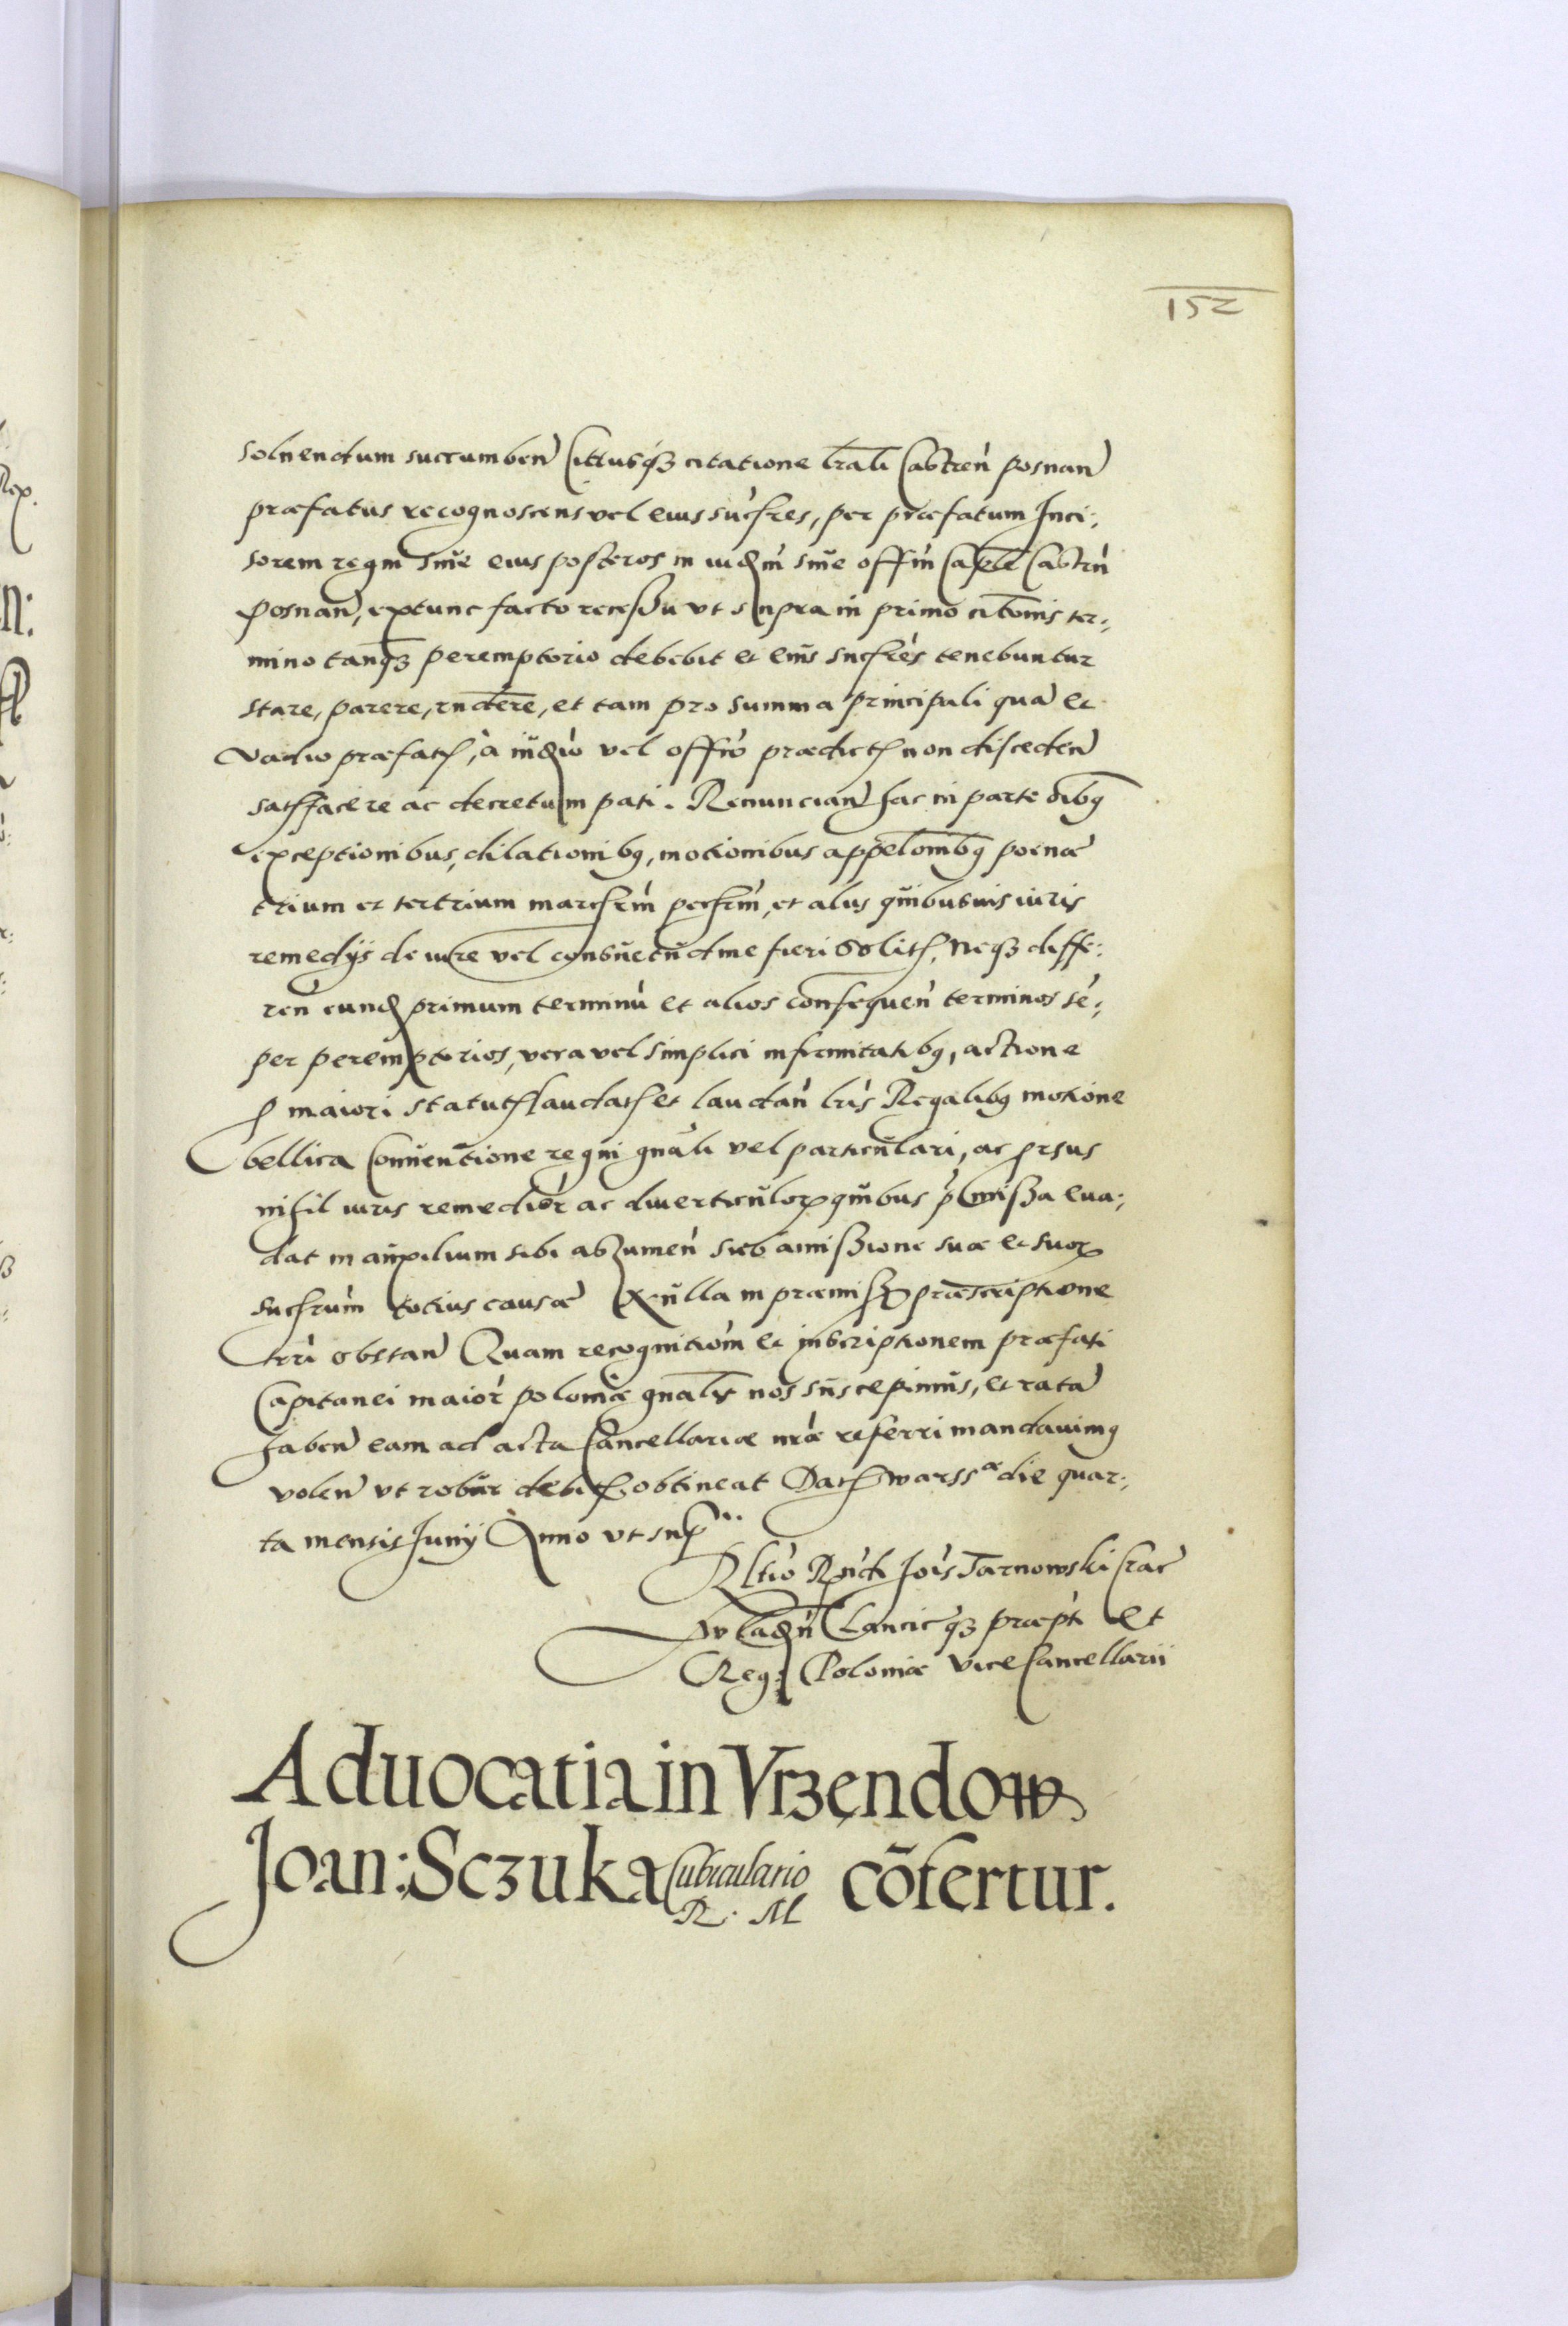 152
solvendum succumben̄ Cittusq3 citatione l̄rali Castren̄ posnan̄
præfatus recognoscens vel eius suc̄hres, per præfatum Inci:,
sorem regni siue eius posteros in iud̄m̄ siue off̄m̄ Ca͞ple Castrn̄
Posnan̄, extunc facto recessu ut supra in primo cit̄onis ter:,
mino tanq̄3 peremptorio debebit et eius suc̄hres tenebuntur
stare, parere, rn̄dere, et tam pro summa principali qua᷑ et
vadio præfat̄, a iud̄io vel off̄o prædict̄ non discedēn
satisfacere ac decretum pati. Renuncian̄ hac in parte oībq
exceptionibus, dilationibq, motionibus appel̄omībq poenæ
trium et tertrium march̄rm̄ pech̄rm̄, et alys quibusuis iuris
remedijs de iure vel consuetudine fieri solit̄. Neq3 diffe:
ren̄ eund̄ primum terminū et alios consequen̄ terminos sē:,
per peremptorios, vera vel simplici infirmitatibq, actione
p maiori statut̄ laudat̄ et laudan̄ l̄ris Regalibq motione
bellica Conuentione regni gn̄ali vel particulari, ac prsus
nihil iuris remedior̄ ac diuerticulorꝝ quibus p̄missa eua:,
dat in auxilium sibi assumen̄ sub amissione suæ et suorꝝ
suc̄hrum totius causæ Nulla in præmiss̄ præscriptione
trr̄i obstan̄ Quam recognitiōm et inscriptionem præfati
Capitanei maior̄ poloniæ gn̄al̄ nos suscepimus, et rata᷑
haben̄ eam ad acta Cancellariæ nr̄æ referri mandauimq
volen̄ vt robur debit̄ obtineat Dat̄ warssᵃᵉ die quar:,
ta mensis Junij Anno vt sup̄ᵃ
Rl̄tio Rn̄di Jois Tarnowski Crac̄
wlad̄n̄ Lancic̄q3 præp̄ti et
Reg: Poloniæ vice Cancellarii
Aduocatia in Vrzędow
Joan: Sczuka Cubiculario
R. M cōfertur.